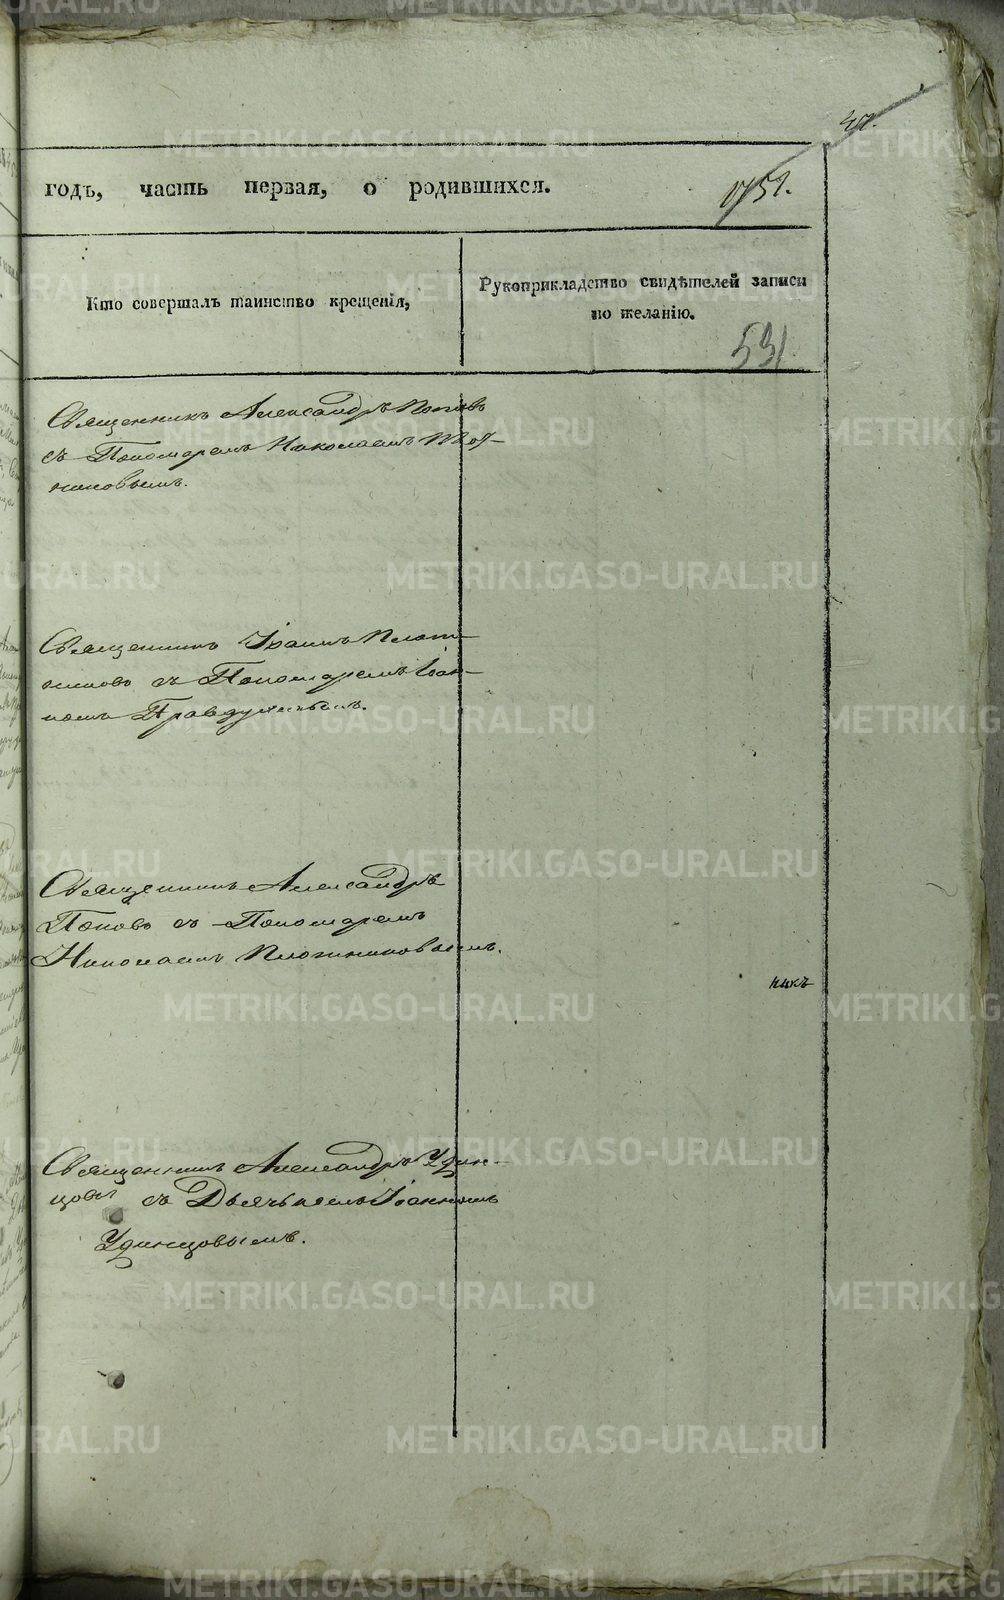 годъ, часть первая, о родившихся.
Кто совершалъ таинство крещенія,
Рукоприкладство свидѣтелей записи
по желанію.
531.
Священникъ Александръ Поповъ
съ Пономаремъ Николаемъ Плот-
никовымъ.
Священникъ Іоаннъ Плот-
никовъ съ Пономаремъ Іоан-
номъ Правдухинымъ.
Священникъ Александръ
Поповъ съ Пономаремъ
Николаемъ Плотниковымъ.
никъ
Священникъ Александръ Удин-
цовъ съ Дьячькомъ Іоанномъ
Удинцовымъ.
METRIKI.GASO-URAL.RU